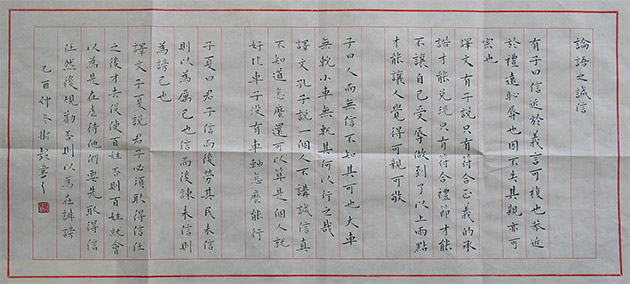 論語之誠信
有子曰信近於義言可複也恭近
於禮遠恥辱也因不失其親亦可
宗也
譯文有子說只有符合正義的承
諾才能兌現只有符合禮節才能
不讓自己受辱做到了以上兩點
才能讓人覺得可親可敬
子曰人而無信不知其可也大車
無輗小車無軏其何以行之哉
譯文孔子說一個人不講誠信真
不知道怎麼還可以算是個人就
好比車子沒有車軸怎麼能行
子夏曰君子信而後勞其民未信
則以為厲己也信而後諫未信則
為謗己也
譯文子夏說君子必須取得信任
之後才去役使百姓否則百姓就會
以為是在虐待他們要先取得信
任然後規勸否則以為在誹謗
乙酉仲冬樹